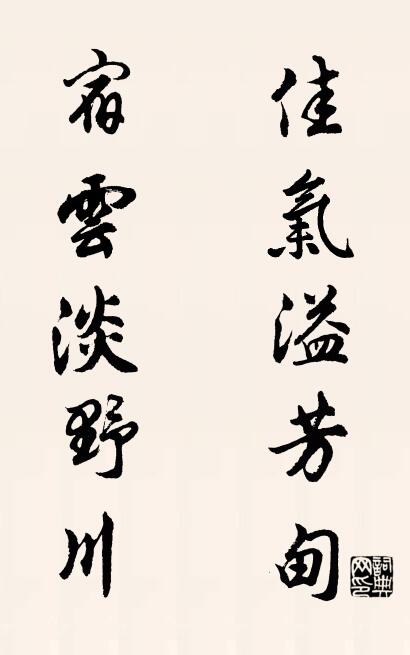 佳氣溢芳甸
宿雲淡野川
詞典網印